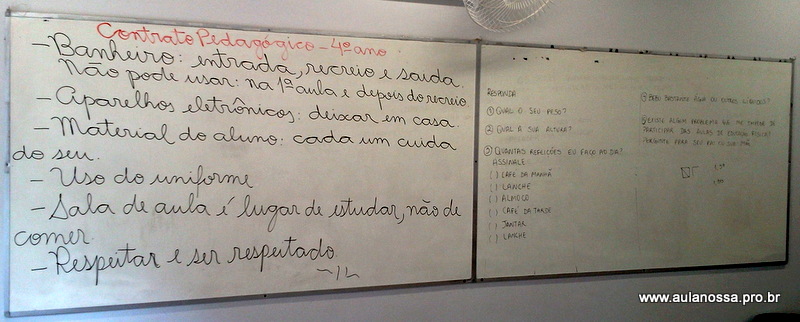 Contrato Pedagógico - 4º ano
- Banheiro: entrada, recreio e saída.
Não pode usar: na 1ª aula e depois do recreio
- Aparelhos eletrônicos: deixar em casa.
- Material do aluno: cada um cuida
do seu.
- Uso do uniforme
- Sala de aula é lugar de estudar, não de
comer.
- Respeitar e ser respeitado.
RESPONDA
① QUAL O SEU PESO?
② QUAL A SUA ALTURA?
③ QUANTAS REFEIÇÕES EU FAÇO AO DIA?
ASSINALE:
( ) CAFÉ DA MANHÃ
( ) LANCHE
( ) ALMOÇO
( ) CAFÉ DA TARDE
( ) JANTAR
( ) LANCHE
BEBO BASTANTE ÁGUA OU OUTROS LÍQUIDOS?
EXISTE ALGUM PROBLEMA QUE ME IMPEDE DE
PARTICIPAR DAS AULAS DE EDUCAÇÃO FÍSICA?
PERGUNTE PARA SEU PAI OU SUA MÃE.
www.aulanossa.pro.br